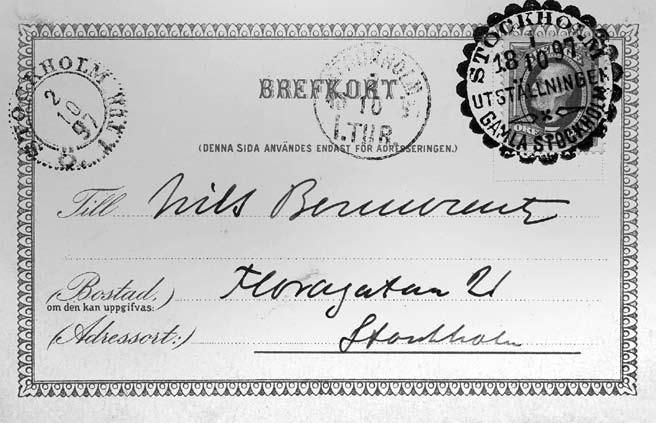 STOCKHOLM
1
18 10 97
UTSTÄLLNINGEN
GAMLA STOCKHOLM
ÖRE
BREFKORT.
STOCKHOLM
10
1.TUR.
2
10
97
(DENNA SIDA ANVÄNDES ENDAST FÖR ADRESSERINGEN.)
Till Nils
(Bostad,) Floragatan 21
om den kan uppgifvas:
(Adressort:) Stockholm